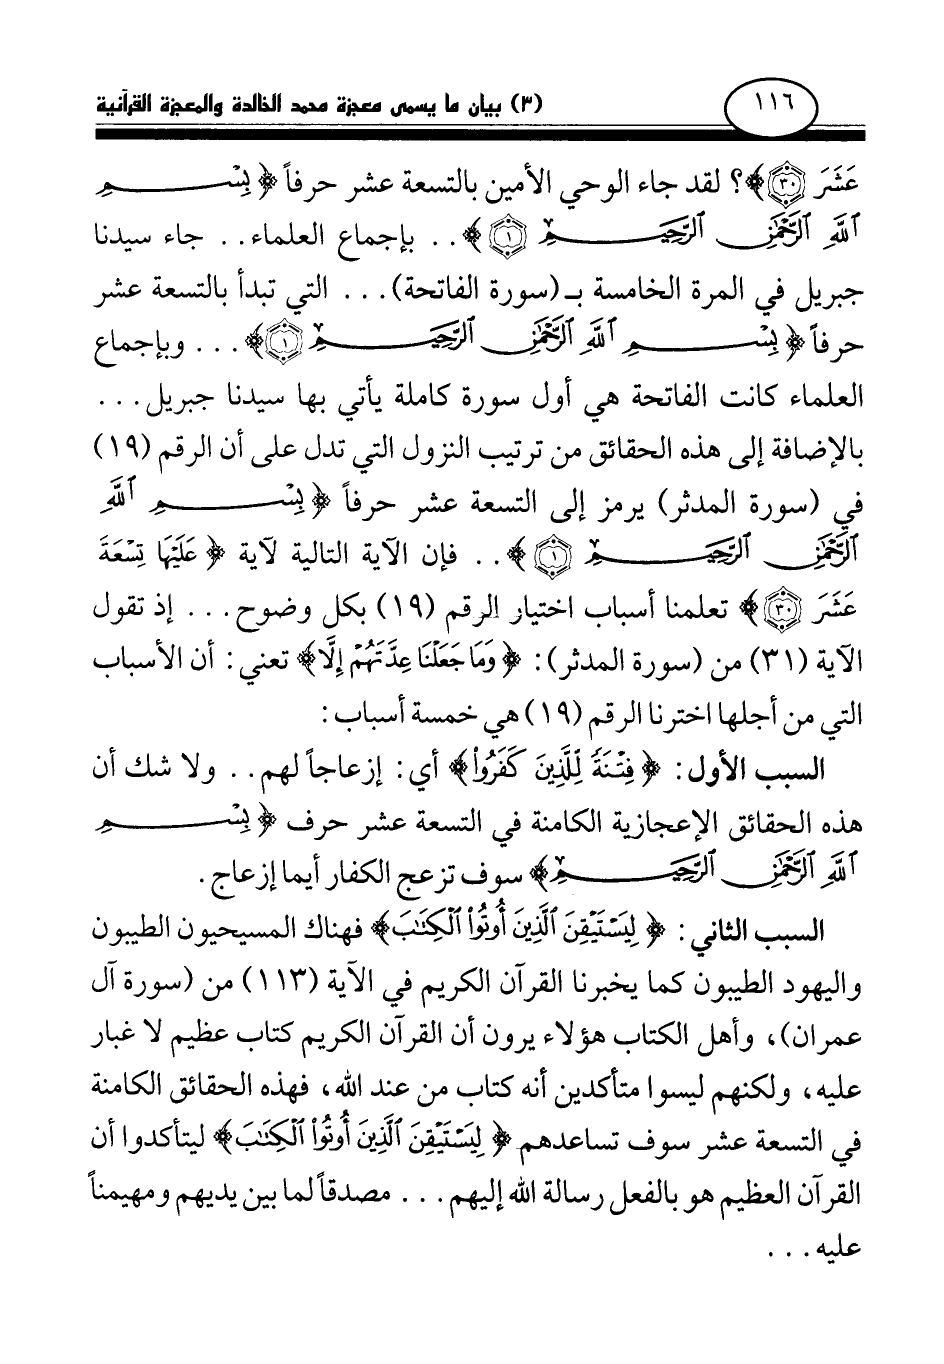 ١١٦ (٣) بيان ما يسمى معجزة محمد الخالدة والمعجزة القرآنية
عَشَرَ ٣٠﴾؟ لقد جاء الوحي الأمين بالتسعة عشر حرفاً ﴿بِسْمِ
ٱللَّهِ ٱلرَّحْمَٰنِ ٱلرَّحِيمِ ١﴾.. بإجماع العلماء.. جاء سيدنا
جبريل في المرة الخامسة بـ(سورة الفاتحة)... التي تبدأ بالتسعة عشر
حرفاً ﴿بِسْمِ ٱللَّهِ ٱلرَّحْمَٰنِ ٱلرَّحِيمِ ١﴾... وبإجماع
العلماء كانت الفاتحة هي أول سورة كاملة يأتي بها سيدنا جبريل...
بالإضافة إلى هذه الحقائق من ترتيب النزول التي تدل على أن الرقم (١٩)
في (سورة المدثر) يرمز إلى التسعة عشر حرفاً ﴿بِسْمِ ٱللَّهِ
ٱلرَّحْمَٰنِ ٱلرَّحِيمِ ١﴾.. فإن الآية التالية لآية ﴿عَلَيْهَا تِسْعَةَ
عَشَرَ ٣٠﴾ تعلمنا أسباب اختيار الرقم (١٩) بكل وضوح... إذ تقول
الآية (٣١) من (سورة المدثر): ﴿وَمَا جَعَلْنَا عِدَّتَهُمْ إِلَّا﴾ تعني: أن الأسباب
التي من أجلها اخترنا الرقم (١٩) هي خمسة أسباب:
السبب الأول: ﴿فِتْنَةً لِّلَّذِينَ كَفَرُوا۟﴾ أي: إزعاجاً لهم.. ولا شك أن
هذه الحقائق الإعجازية الكامنة في التسعة عشر حرف ﴿بِسْمِ
ٱللَّهِ ٱلرَّحْمَٰنِ ٱلرَّحِيمِ﴾ سوف تزعج الكفار أيما إزعاج.
السبب الثاني: ﴿لِيَسْتَيْقِنَ ٱلَّذِينَ أُوتُوا۟ ٱلْكِتَٰبَ﴾ فهناك المسيحيون الطيبون
واليهود الطيبون كما يخبرنا القرآن الكريم في الآية (١١٣) من (سورة آل
عمران)، وأهل الكتاب هؤلاء يرون أن القرآن الكريم كتاب عظيم لا غبار
عليه، ولكنهم ليسوا متأكدين أنه كتاب من عند الله، فهذه الحقائق الكامنة
في التسعة عشر سوف تساعدهم ﴿لِيَسْتَيْقِنَ ٱلَّذِينَ أُوتُوا۟ ٱلْكِتَٰبَ﴾ ليتأكدوا أن
القرآن العظيم هو بالفعل رسالة الله إليهم... مصدقاً لما بين يديهم ومهيمناً
عليه...